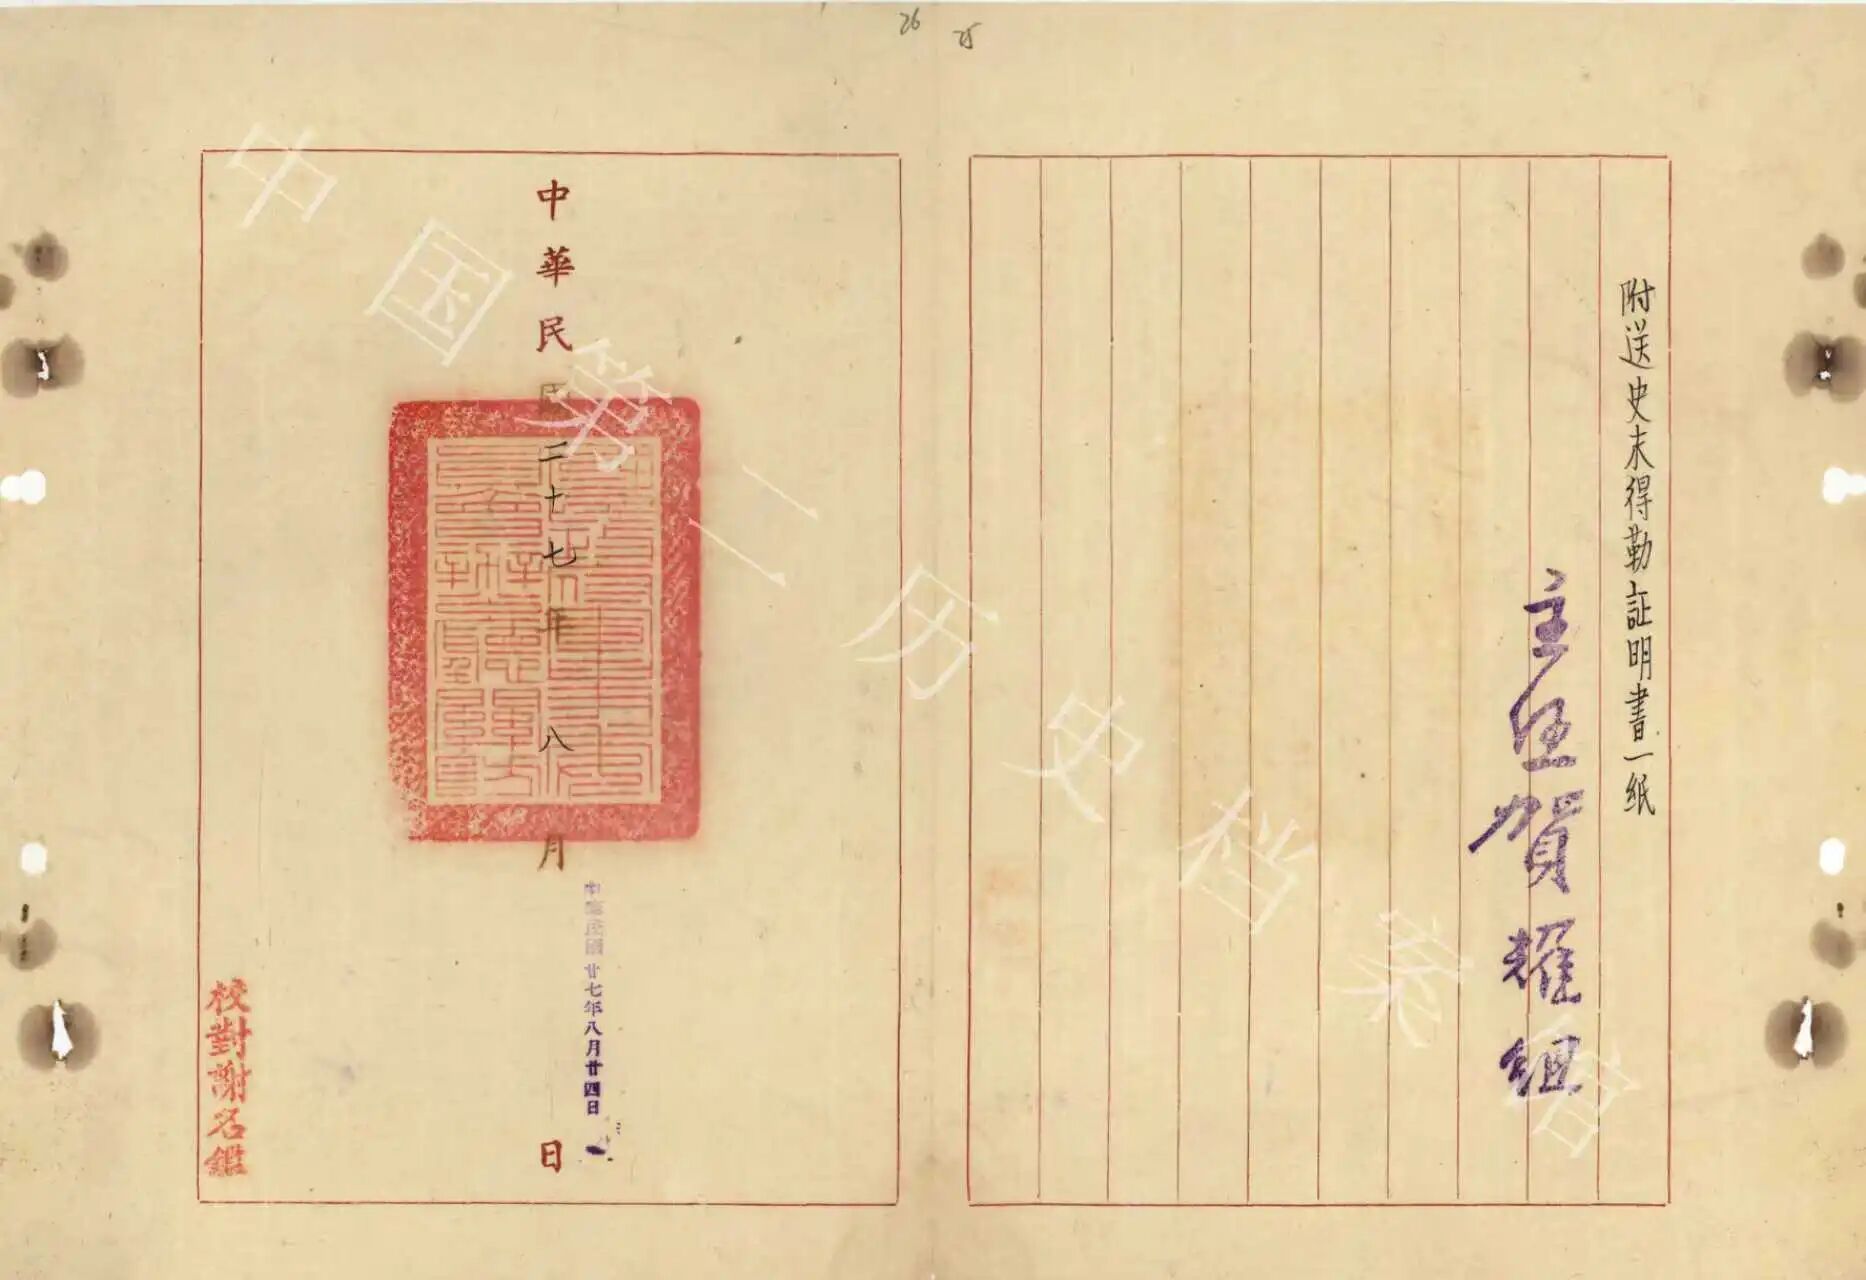 26
25
附送史末得勒証明書一紙
主任賀耀組
中華民國二十七年八月 日
中華民國廿七年八月廿四日
校對謝名鑑
中国第二历史档案馆